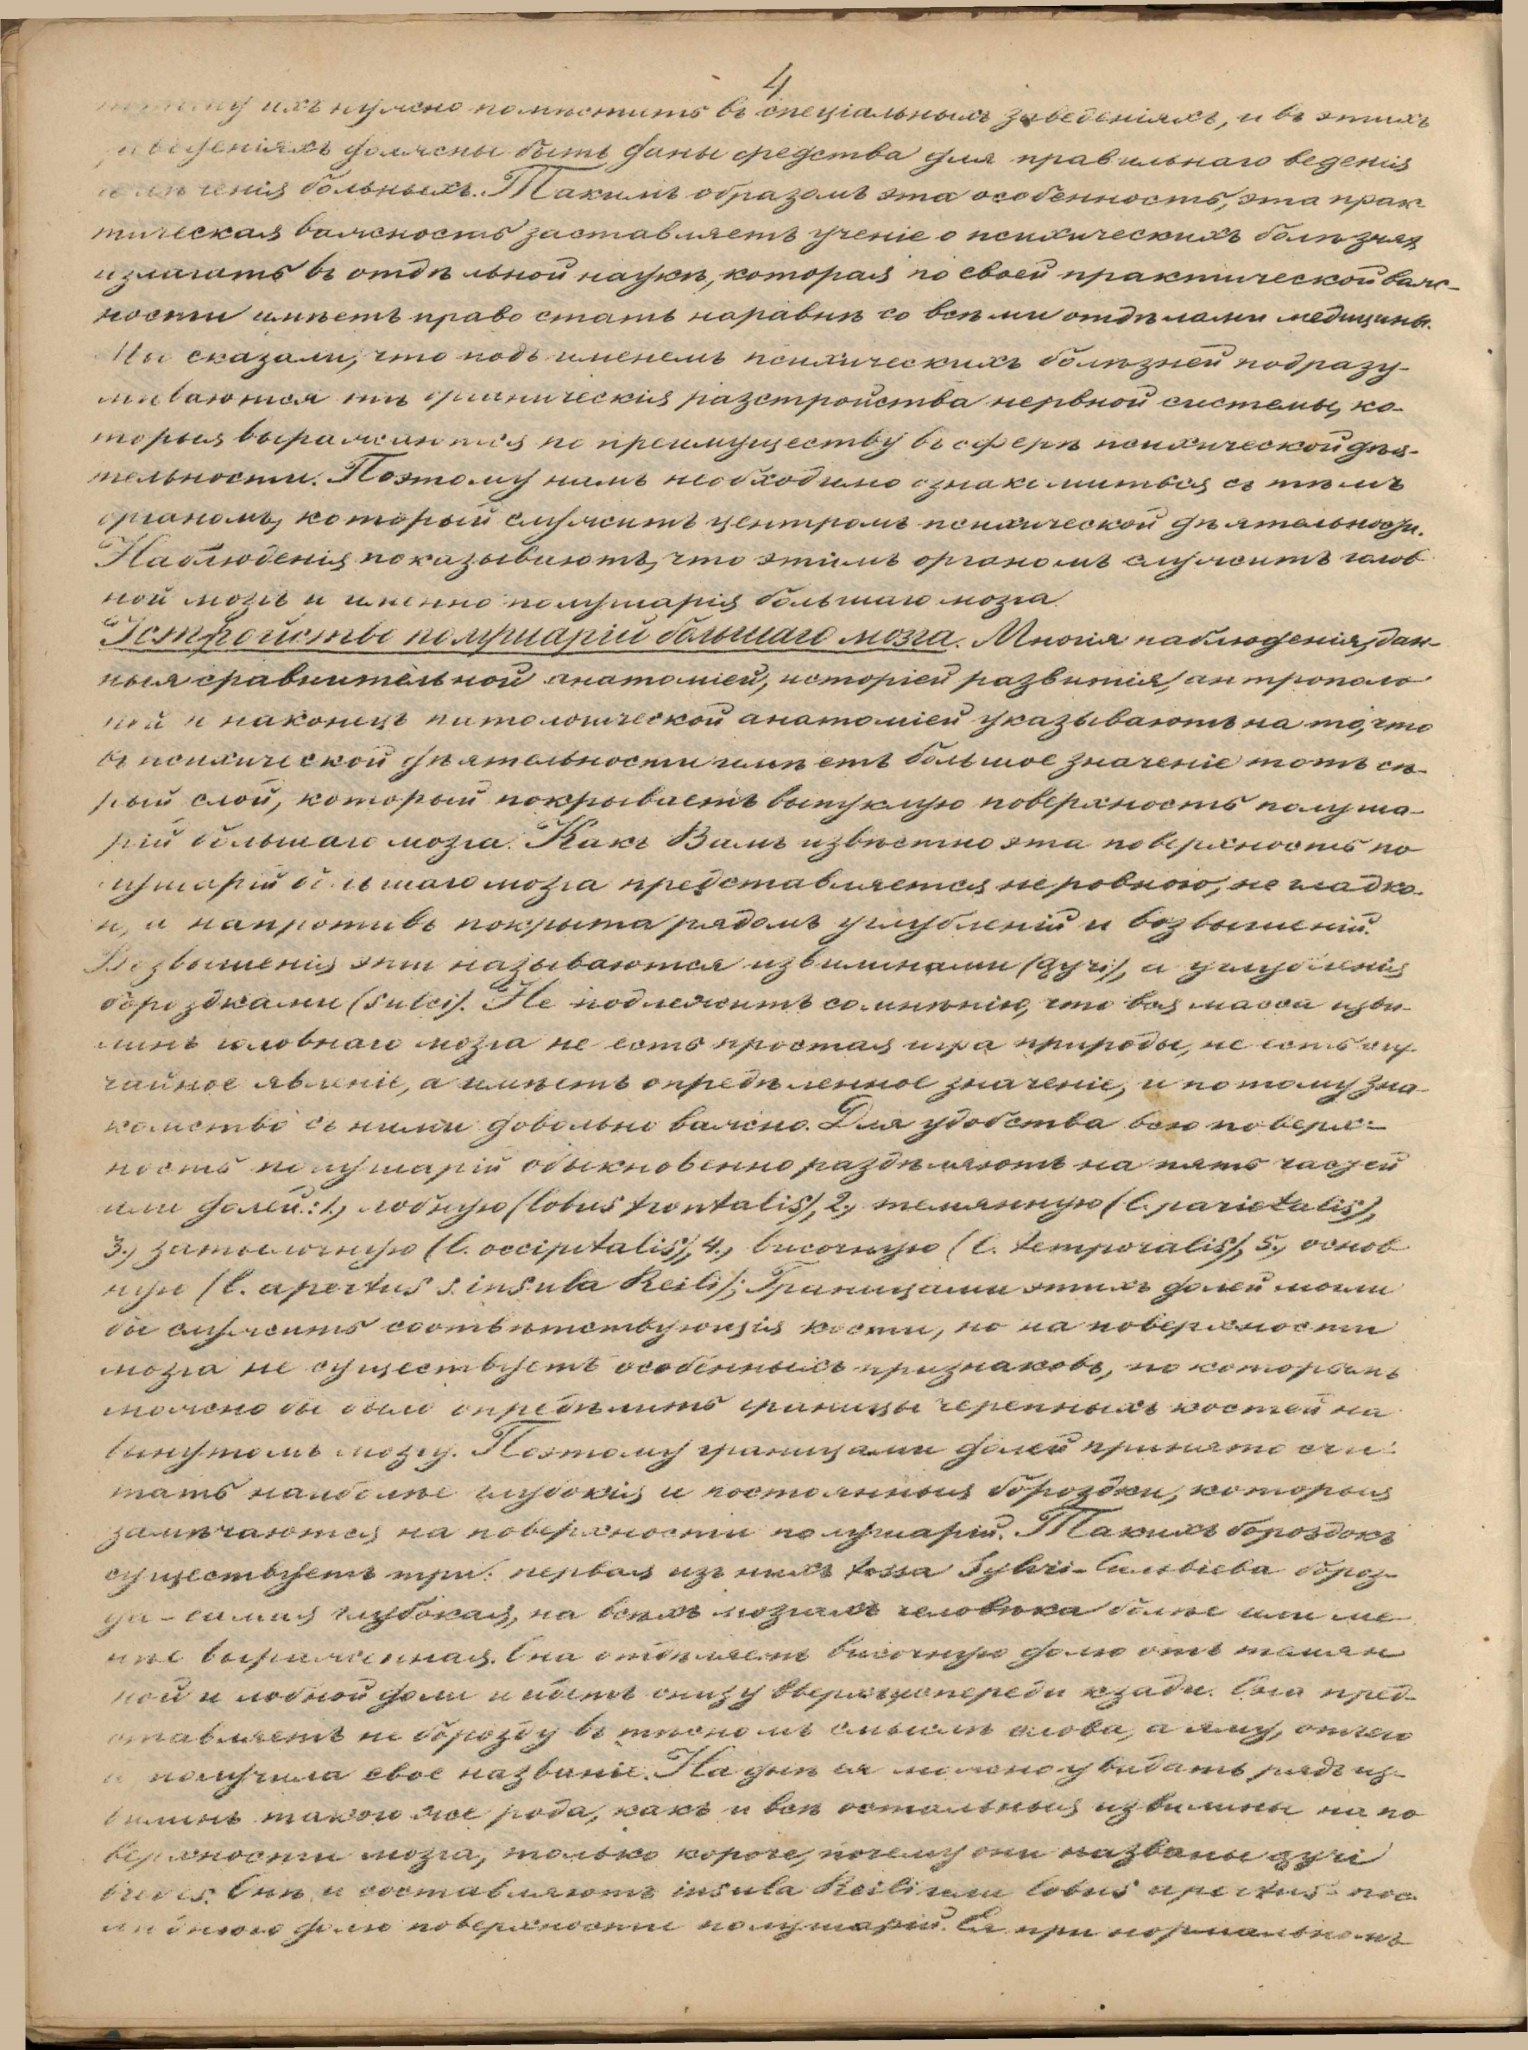 4
потому ихъ нужно помѣстить въ спеціальныхъ заведеніяхъ, и въ этихъ
заведеніяхъ должны быть даны средства для правильнаго веденія
леченія больныхъ. Такимъ образомъ эта особенность, эта прак
тическая важность заставляетъ ученіе о психическихъ болѣзняхъ
излагать въ отдѣльной наукѣ, которая по своей практической важ-
ности имѣетъ право стать наравнѣ со всѣми отдѣлами медицины.
Мы сказали, что подъ именемъ психическихъ болѣзней подразу-
мѣваются тѣ органическія разстройства нервной системы, ко-
торыя выражаются по преимуществу въ сферѣ психической дѣя-
тельности. Поэтому намъ необходимо ознакомиться съ тѣмъ
органомъ, который служитъ центромъ психической дѣятельности.
Наблюденія показываютъ, что этимъ органомъ служитъ голов
ной мозгъ и именно полушарія большаго мозга
Устройство полушарій большаго мозга. Многія наблюденія, дан-
ныя сравнительной анатоміей, исторіей развитія, антрополо
гіей и наконецъ патологической анатоміей указываютъ на то, что
въ психической дѣятельности имѣетъ большое значеніе тотъ сѣ-
рый слой, который покрываетъ выпуклую поверхность полуша-
рій большаго мозга. Какъ Вамъ извѣстно эта поверхность по
лушарій большаго мозга представляется неровною, не гладко-
ю, а напротивъ покрыта рядомъ углубленій и возвышеній.
Возвышенія эти называются извилинами (gyri), а углубленія
бороздками (sulci). Не подлежитъ сомнѣнію, что вся масса изви-
линъ головнаго мозга не есть простая игра природы, не есть слу-
чайное явленіе, а имѣетъ опредѣленное значеніе, и потому зна-
комство съ ними довольно важно. Для удобства всю поверх-
ность полушарій обыкновенно раздѣляютъ на пять частей
или долей: 1., лобную (lobus frontalis), 2., темянную (l. parietalis),
3., затылочную (l. occipitalis), 4., височную (l. temporalis), 5., основ
ную (l. apertus s. insula Reili); Границами этихъ долей могли
бы служить соотвѣтствующія кости, но на поверхности
мозга не существуетъ особенныхъ признаковъ, по которымъ
можно бы было опредѣлить границы черепныхъ костей на
вынутомъ мозгу. Поэтому границами долей принято счи-
тать наиболѣе глубокія и постоянныя бороздки, которыя
замѣчаются на поверхности полушарій. Такихъ бороздокъ
существуетъ три: первая изъ нихъ fossa Sylvii - Сильвіева бороз-
да - самая глубокая, на всѣхъ мозгахъ человѣка болѣе или ме
нѣе выраженная. Она отдѣляетъ височную долю отъ темян
ной и лобной доли и идетъ снизу вверхъ спереди кзади. Она пред-
ставляетъ не борозду въ тѣсномъ смыслѣ слова, а яму, отчего
и получила свое названіе. На днѣ ея можно увидать рядъ из-
вилинъ такого же рода, какъ и всѣ остальныя извилины на по
верхности мозга, только короче, почему они названы gyri
breves. Онѣ и составляютъ insula Reili или lobus apertus - пос
лѣднюю долю поверхности полушарій. Ея при нормальномъ